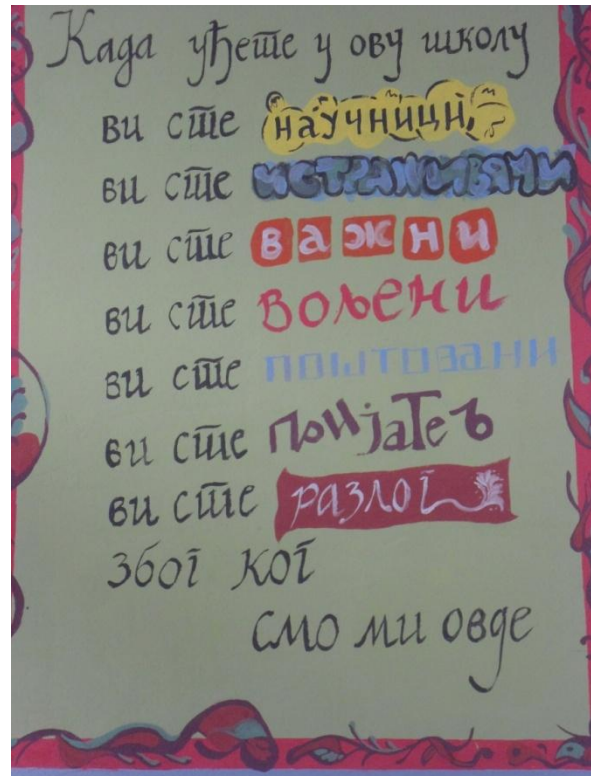 Када уђете у ову школу
ви сте научници
ви сте истраживачи
ви сте важни
ви сте вољени
ви сте поштовани
ви сте пријатељ
ви сте разлог
због ког
смо ми овде